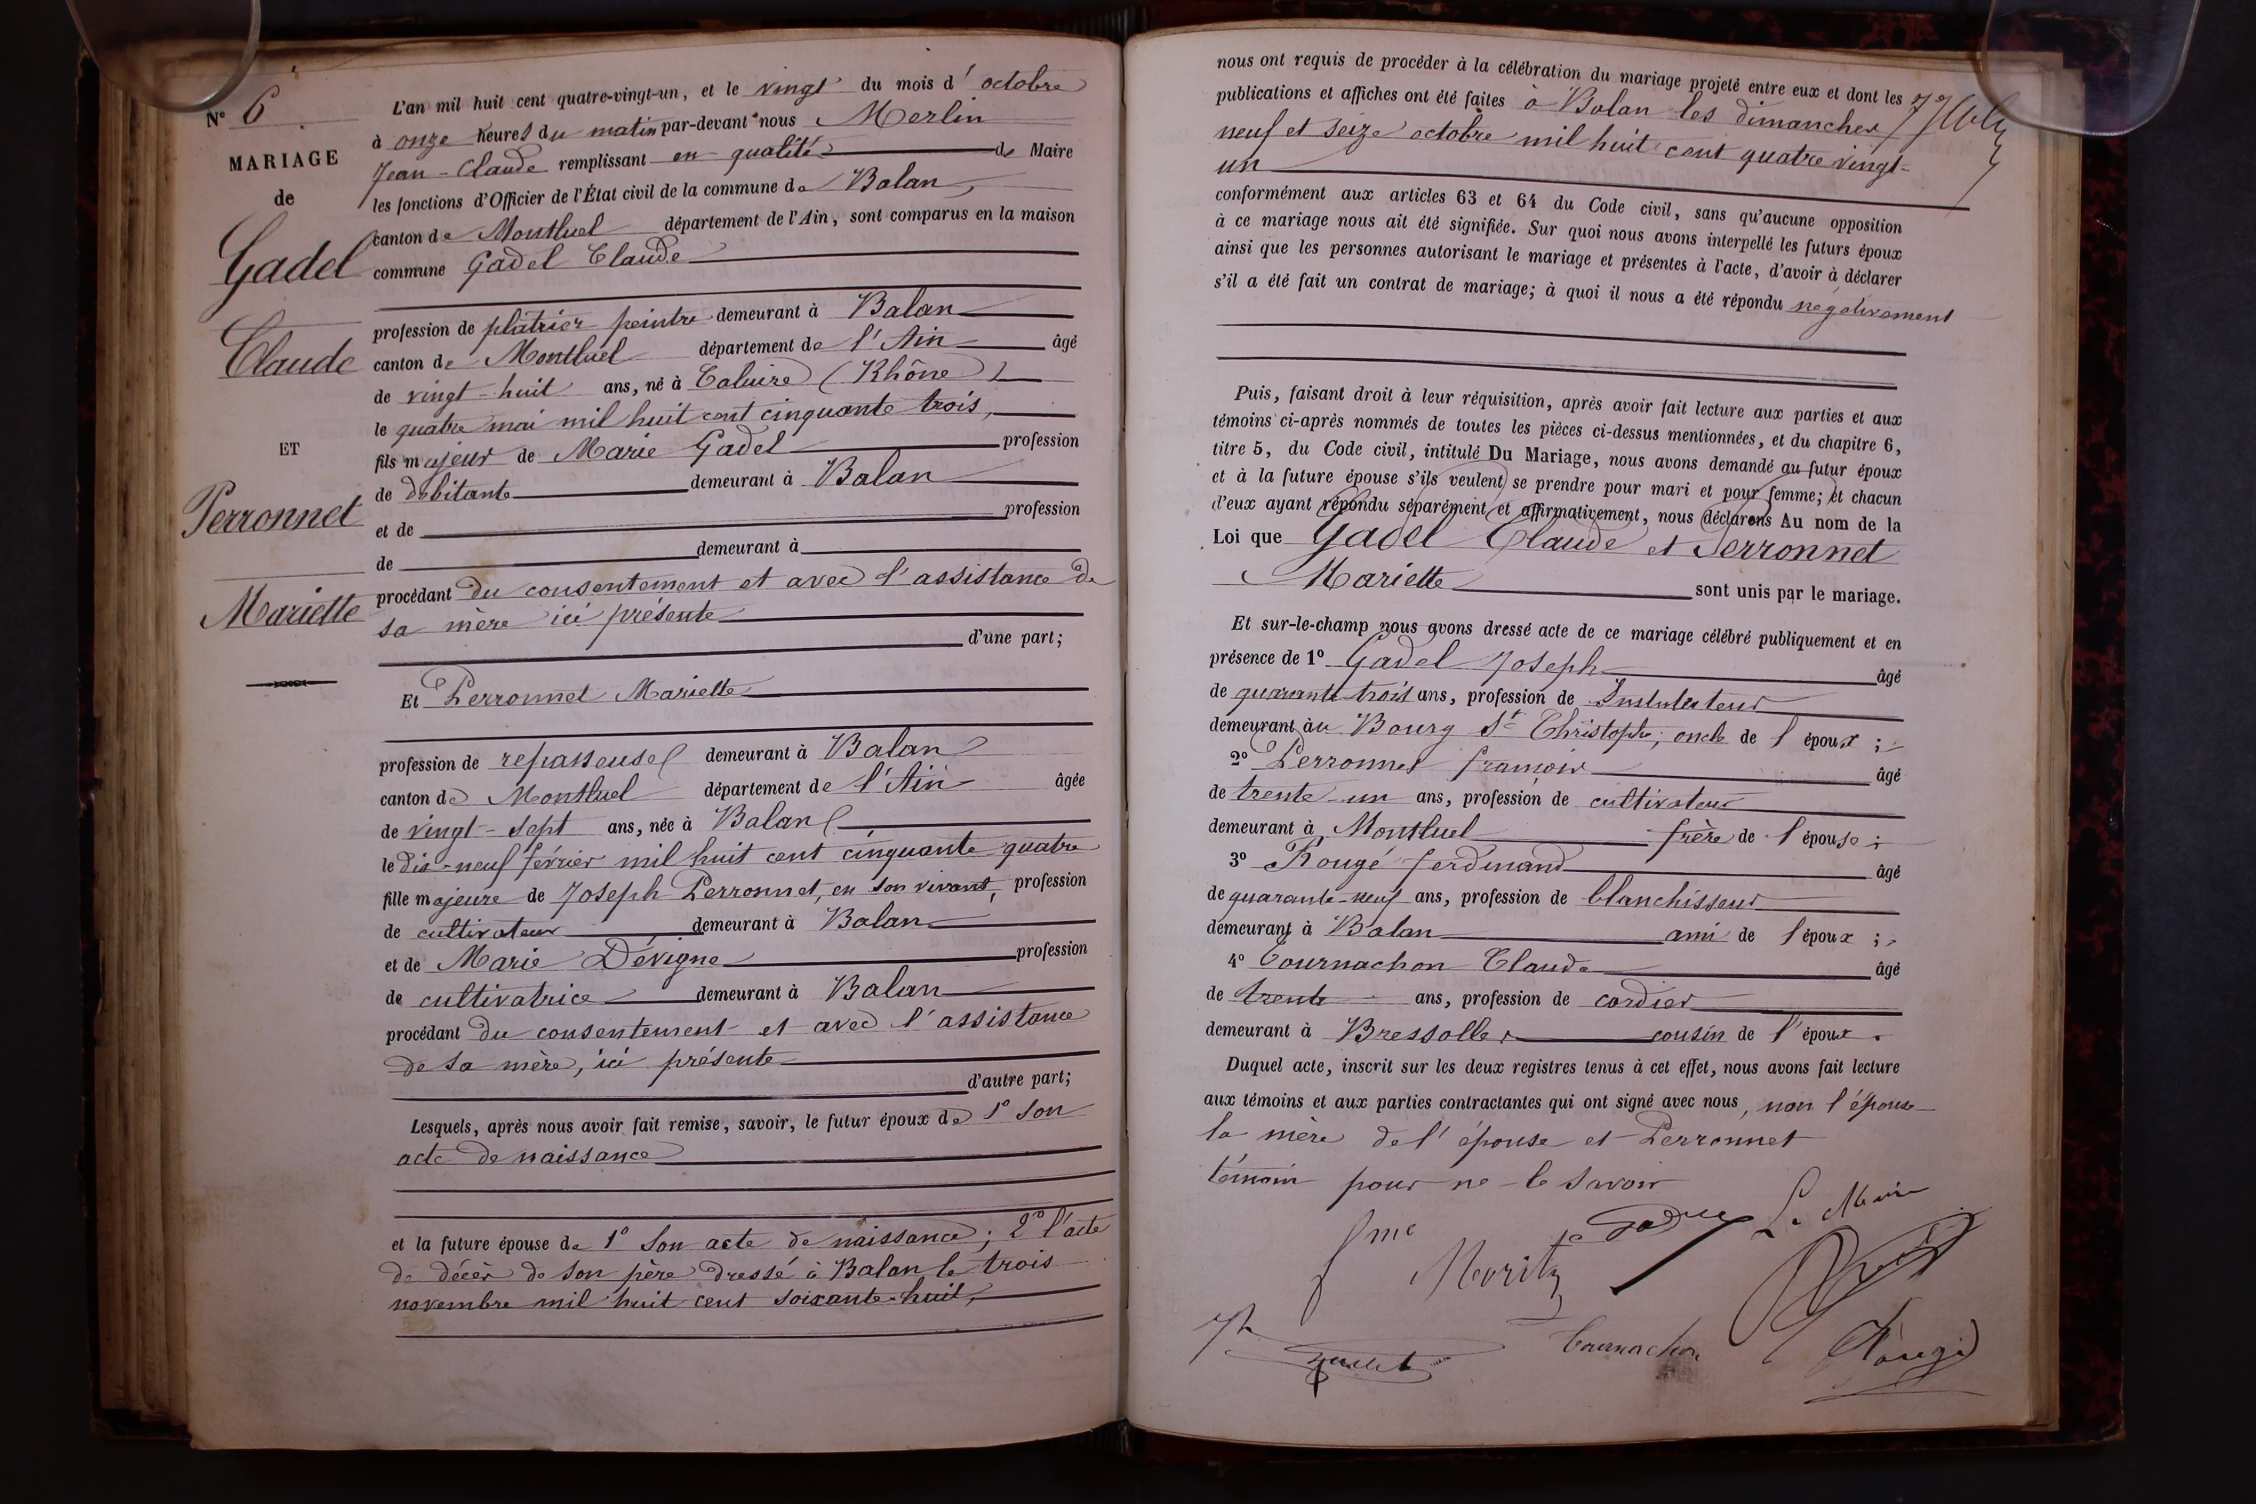 N° 6
MARIAGE
de
Gadel
Claude
ET
Perronnet
Mariette
L'an mil huit cent quatre-vingt-un, et le vingt du mois d'octobre
à onze heures du matin par-devant nous Merlin
Jean-Claude remplissant en qualité de Maire
les fonctions d'Officier de l'État civil de la commune de Balan,
canton de Montluel département de l'Ain, sont comparus en la maison
commune Gadel Claude
profession de plâtrier peintre demeurant à Balan
canton de Montluel département de l'Ain âgé
de vingt-huit ans, né à Caluire (Rhône)
le quatre mai mil huit cent cinquante trois,
fils majeur de Marie Gadel profession
de débitante demeurant à Balan
et de profession
de demeurant à
procédant du consentement et avec l'assistance de
sa mère ici présente
d'une part;
Et Perronnet Mariette
profession de repasseuse demeurant à Balan
canton de Montluel département de l'Ain âgée
de vingt-sept ans, née à Balan
le dix-neuf février mil huit cent cinquante quatre
fille majeure de Joseph Perronnet, en son vivant, profession
de cultivateur demeurant à Balan
et de Marie Dévigne profession
de cultivatrice demeurant à Balan
procédant du consentement et avec l'assistance
de sa mère, ici présente
d'autre part;
Lesquels, après nous avoir fait remise, savoir, le futur époux de 1° son
acte de naissance
et la future épouse de 1° son acte de naissance; 2° l'acte
de décès de son père dressé à Balan le trois
novembre mil huit cent soixante-huit,
nous ont requis de procéder à la célébration du mariage projeté entre eux et dont les
publications et affiches ont été faites à Balan les dimanches
neuf et seize octobre mil huit cent quatre vingt-
un
conformément aux articles 63 et 64 du Code civil, sans qu'aucune opposition
à ce mariage nous ait été signifiée. Sur quoi nous avons interpellé les futurs époux
ainsi que les personnes autorisant le mariage et présentes à l'acte, d'avoir à déclarer
s'il a été fait un contrat de mariage; à quoi il nous a été répondu négativement
Puis, faisant droit à leur réquisition, après avoir fait lecture aux parties et aux
témoins ci-après nommés de toutes les pièces ci-dessus mentionnées, et du chapitre 6,
titre 5, du Code civil, intitulé Du Mariage, nous avons demandé au futur époux
et à la future épouse s'ils veulent se prendre pour mari et pour femme; et chacun
d'eux ayant répondu séparément et affirmativement, nous déclarons Au nom de la
Loi que Gadel Claude et Perronnet
Mariette sont unis par le mariage.
Et sur-le-champ nous avons dressé acte de ce mariage célébré publiquement et en
présence de 1° Gadel Joseph âgé
de quarante-trois ans, profession de Instituteur
demeurant au Bourg St Christophe, oncle de l'époux;
2° Perronnet françois âgé
de trente-un ans, profession de cultivateur
demeurant à Montluel frère de l'épouse;
3° Rougé ferdinand âgé
de quarante-neuf ans, profession de blanchisseur
demeurant à Balan ami de l'époux;
4° Cournachon Claude âgé
de trente ans, profession de cordier
demeurant à Bressolles cousin de l'époux.
Duquel acte, inscrit sur les deux registres tenus à cet effet, nous avons fait lecture
aux témoins et aux parties contractantes qui ont signé avec nous, non l'épouse
la mère de l'épouse et Perronnet
témoin pour ne le savoir
fme Moritz
Le Maire
Cournachon
Rougé